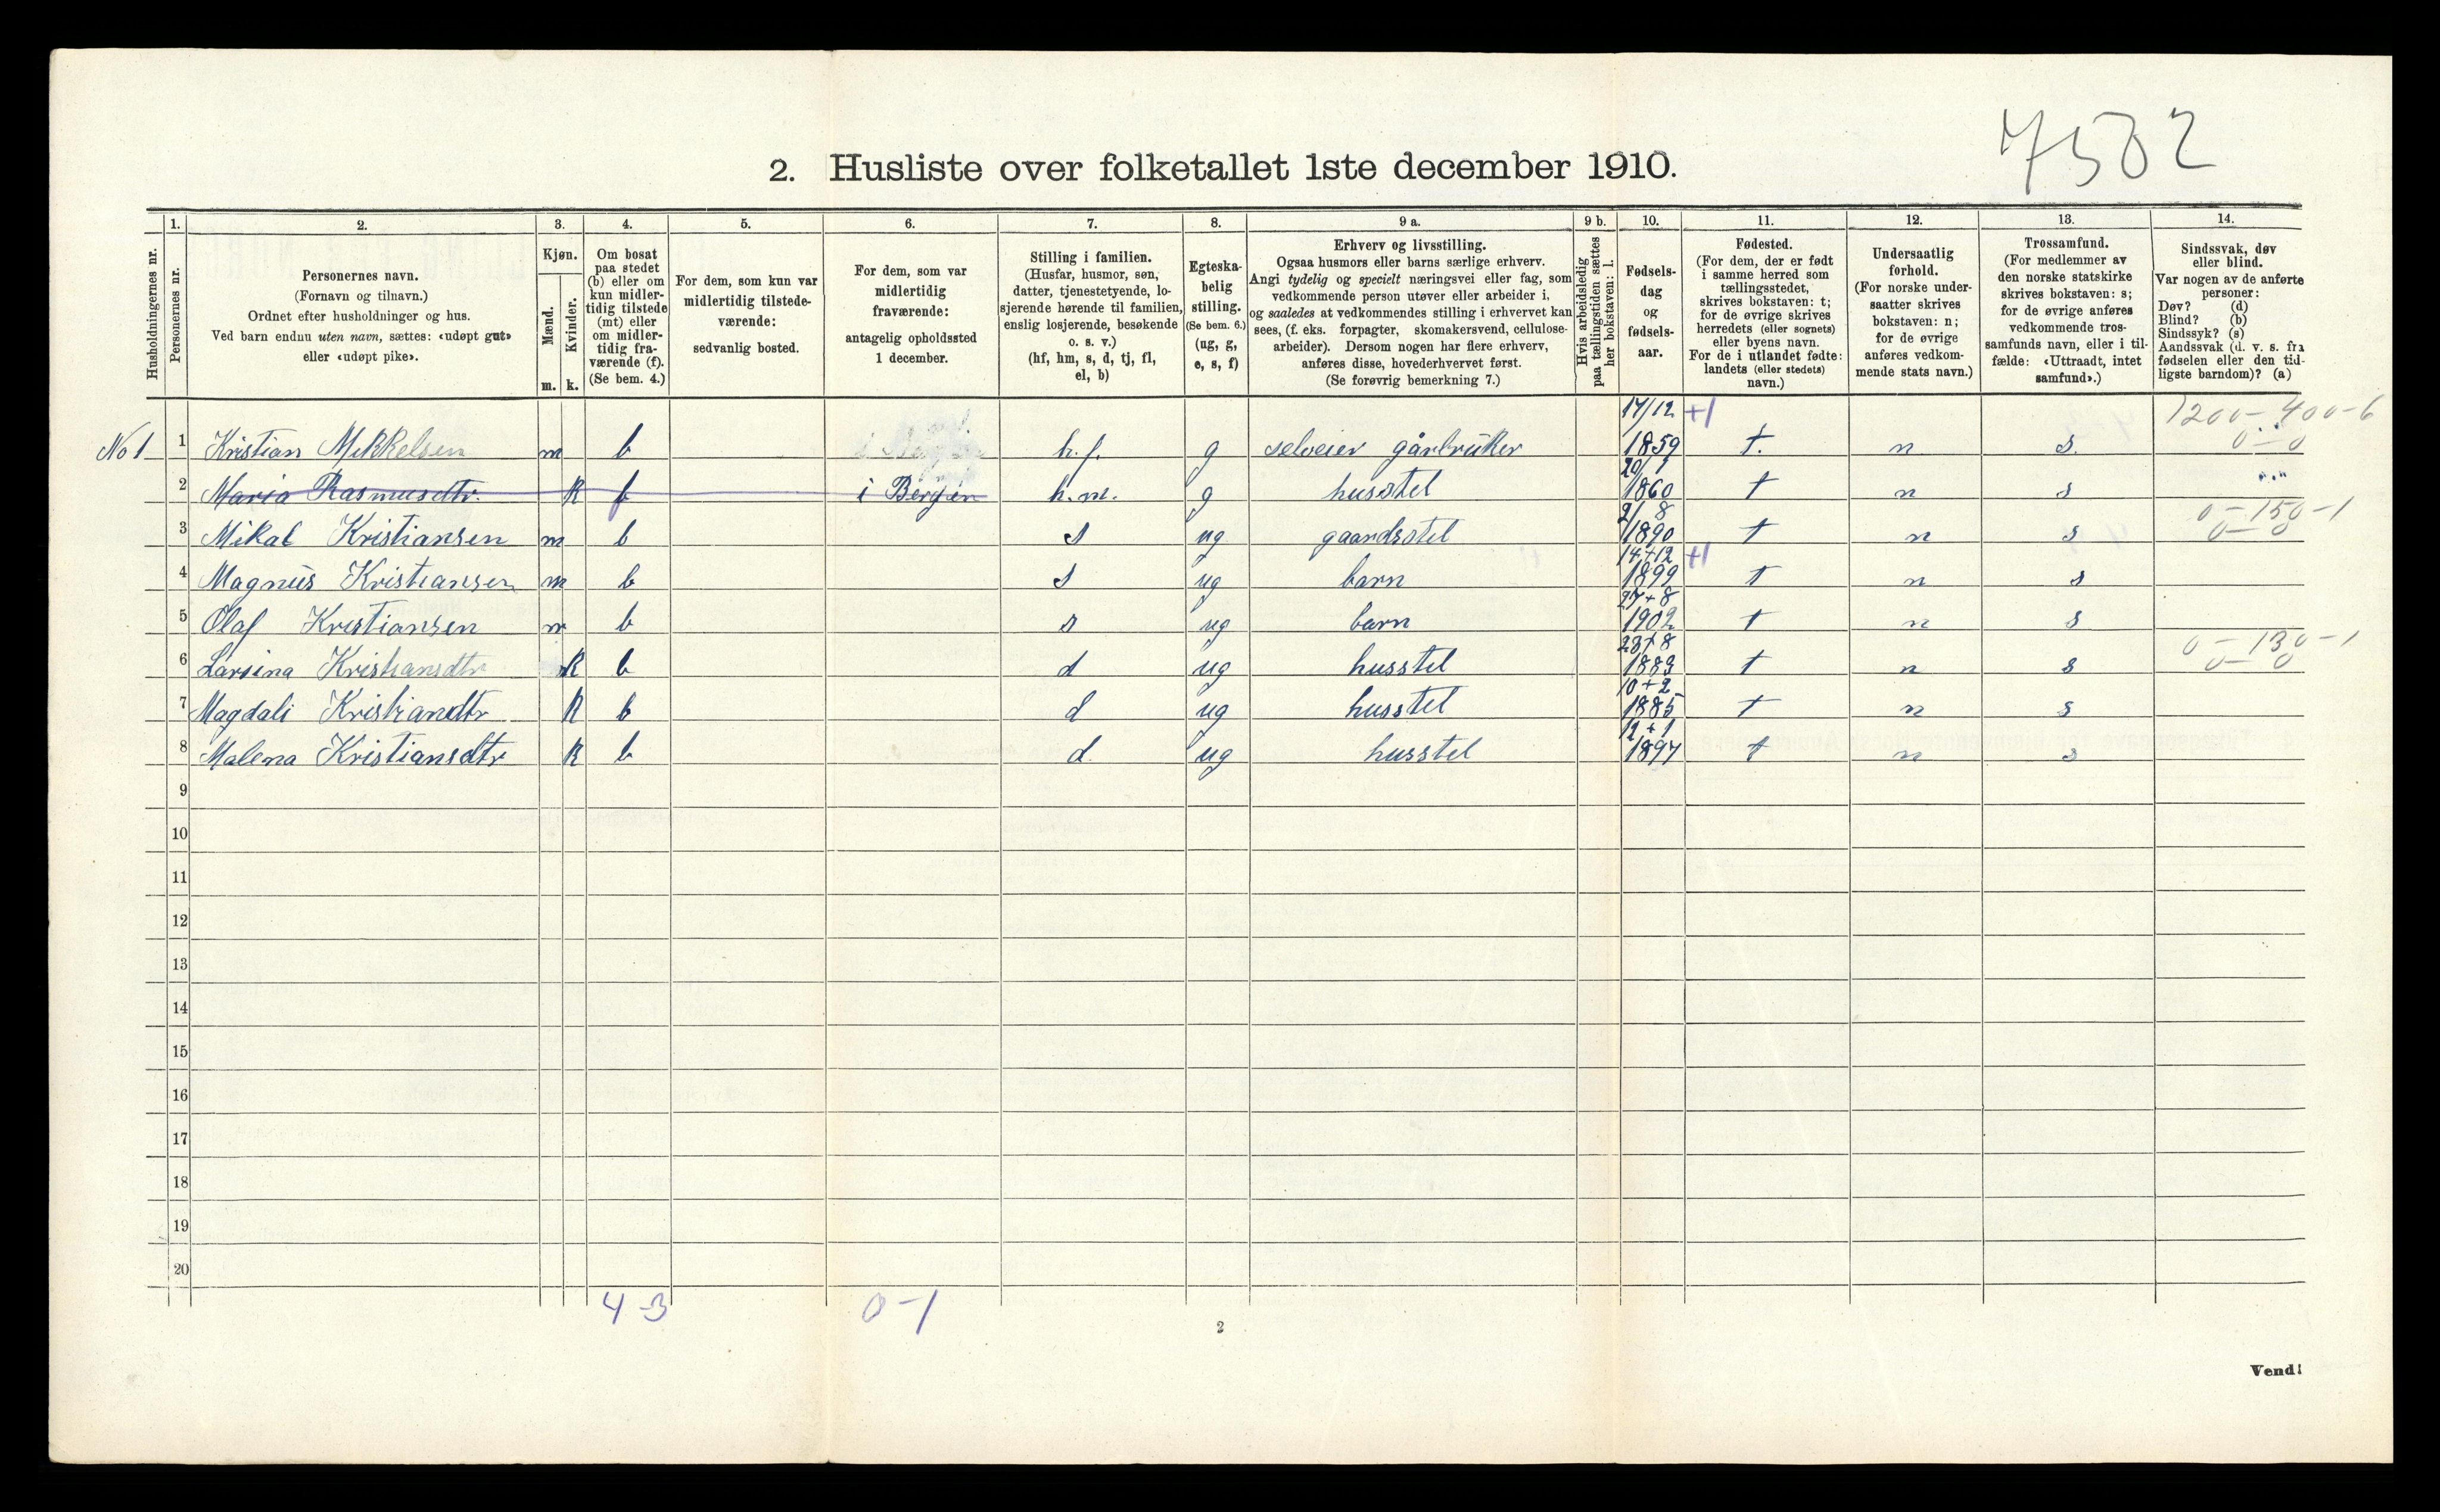 7502
2. Husliste over folketallet 1ste december 1910.
Husholdningernes nr.
1.
Personernes nr.
2.
Personernes navn.
(Fornavn og tilnavn.)
Ordnet efter husholdninger og hus.
Ved barn endnu uten navn, sættes: «udøpt gut»
eller «udøpt pike».
3.
Kjøn.
Mænd.
Kvinder.
m. k.
4.
Om bosat
paa stedet
(b) eller om
kun midler-
tidig tilstede
(mt) eller
om midler-
tidig fra-
værende (f).
(Se bem. 4.)
5.
For dem, som kun var
midlertidig tilstede-
værende:
sedvanlig bosted.
6.
For dem, som var
midlertidig
fraværende:
antagelig opholdssted
1 december.
7.
Stilling i familien.
(Husfar, husmor, søn,
datter, tjenestetyende, lo-
sjerende hørende til familien,
enslig losjerende, besøkende
o. s. v.)
(hf, hm, s, d, tj, fl,
el, b)
8.
Egteska-
belig
stilling.
(Se bem. 6.)
(ug, g,
e, s, f)
9 a.
Erhverv og livsstilling.
Ogsaa husmors eller barns særlige erhverv.
Angi tydelig og specielt næringsvei eller fag, som
vedkommende person utøver eller arbeider i,
og saaledes at vedkommendes stilling i erhvervet kan
sees, (f. eks. forpagter, skomakersvend, cellulose-
arbeider). Dersom nogen har flere erhverv,
anføres disse, hovederhvervet først.
(Se forøvrig bemerkning 7.)
9 b.
Hvis arbeidsledig
paa tællingstiden sættes
her bokstaven: l.
10.
Fødsels-
dag
og
fødsels-
aar.
11.
Fødested.
(For dem, der er født
i samme herred som
tællingsstedet,
skrives bokstaven: t;
for de øvrige skrives
herredets (eller sognets)
eller byens navn.
For de i utlandet fødte:
landets (eller stedets)
navn.)
12.
Undersaatlig
forhold.
(For norske under-
saatter skrives
bokstaven: n;
for de øvrige
anføres vedkom-
mende stats navn.)
13.
Trossamfund.
(For medlemmer av
den norske statskirke
skrives bokstaven: s;
for de øvrige anføres
vedkommende tros-
samfunds navn, eller i til-
fælde: «Uttraadt, intet
samfund».)
14.
Sindssvak, døv
eller blind.
Var nogen av de anførte
personer:
Døv? (d)
Blind? (b)
Sindssyk? (s)
Aandssvak (d. v. s. fra
fødselen eller den tid-
ligste barndom)? (a)
17/12 +1 1200-400-6
No 1 1 Kristian Mikkelsen m b h.f. g selveier gårbruker 1859 t. n s. 0-0
20/1
2 Maria Rasmusdtr. K f i Bergen h.m. g husstel 1860 t n s
2/8 0-150-1
3 Mikal Kristiansen m b s ug gaardsstel 1890 t n s 0-0
14+12 +1
4 Magnus Kristiansen m b s ug barn 1899 t n s
27+8
5 Olaf Kristiansen m b s ug barn 1902 t n s
23+8 0-130-1
6 Larsina Kristiansdtr K b d ug husstel 1883 t n s 0-0
10+2
7 Magdali Kristiandtr K b d ug husstel 1885 t n s
12+1
8 Malena Kristiansdtr K b d ug husstel 1897 t n s
9
10
11
12
13
14
15
16
17
18
19
20
4-3 0-1
2
Vend!